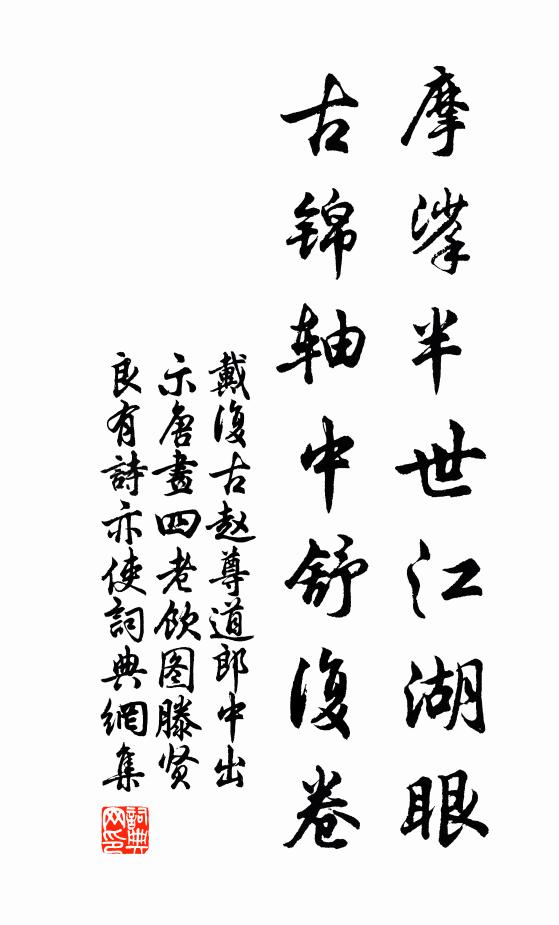 摩挲半世江湖眼
古锦轴中舒復卷
戴復古赵尊道郎中出
示唐畫四老饮图滕贤
良有詩亦使詞典網集
詞典網印